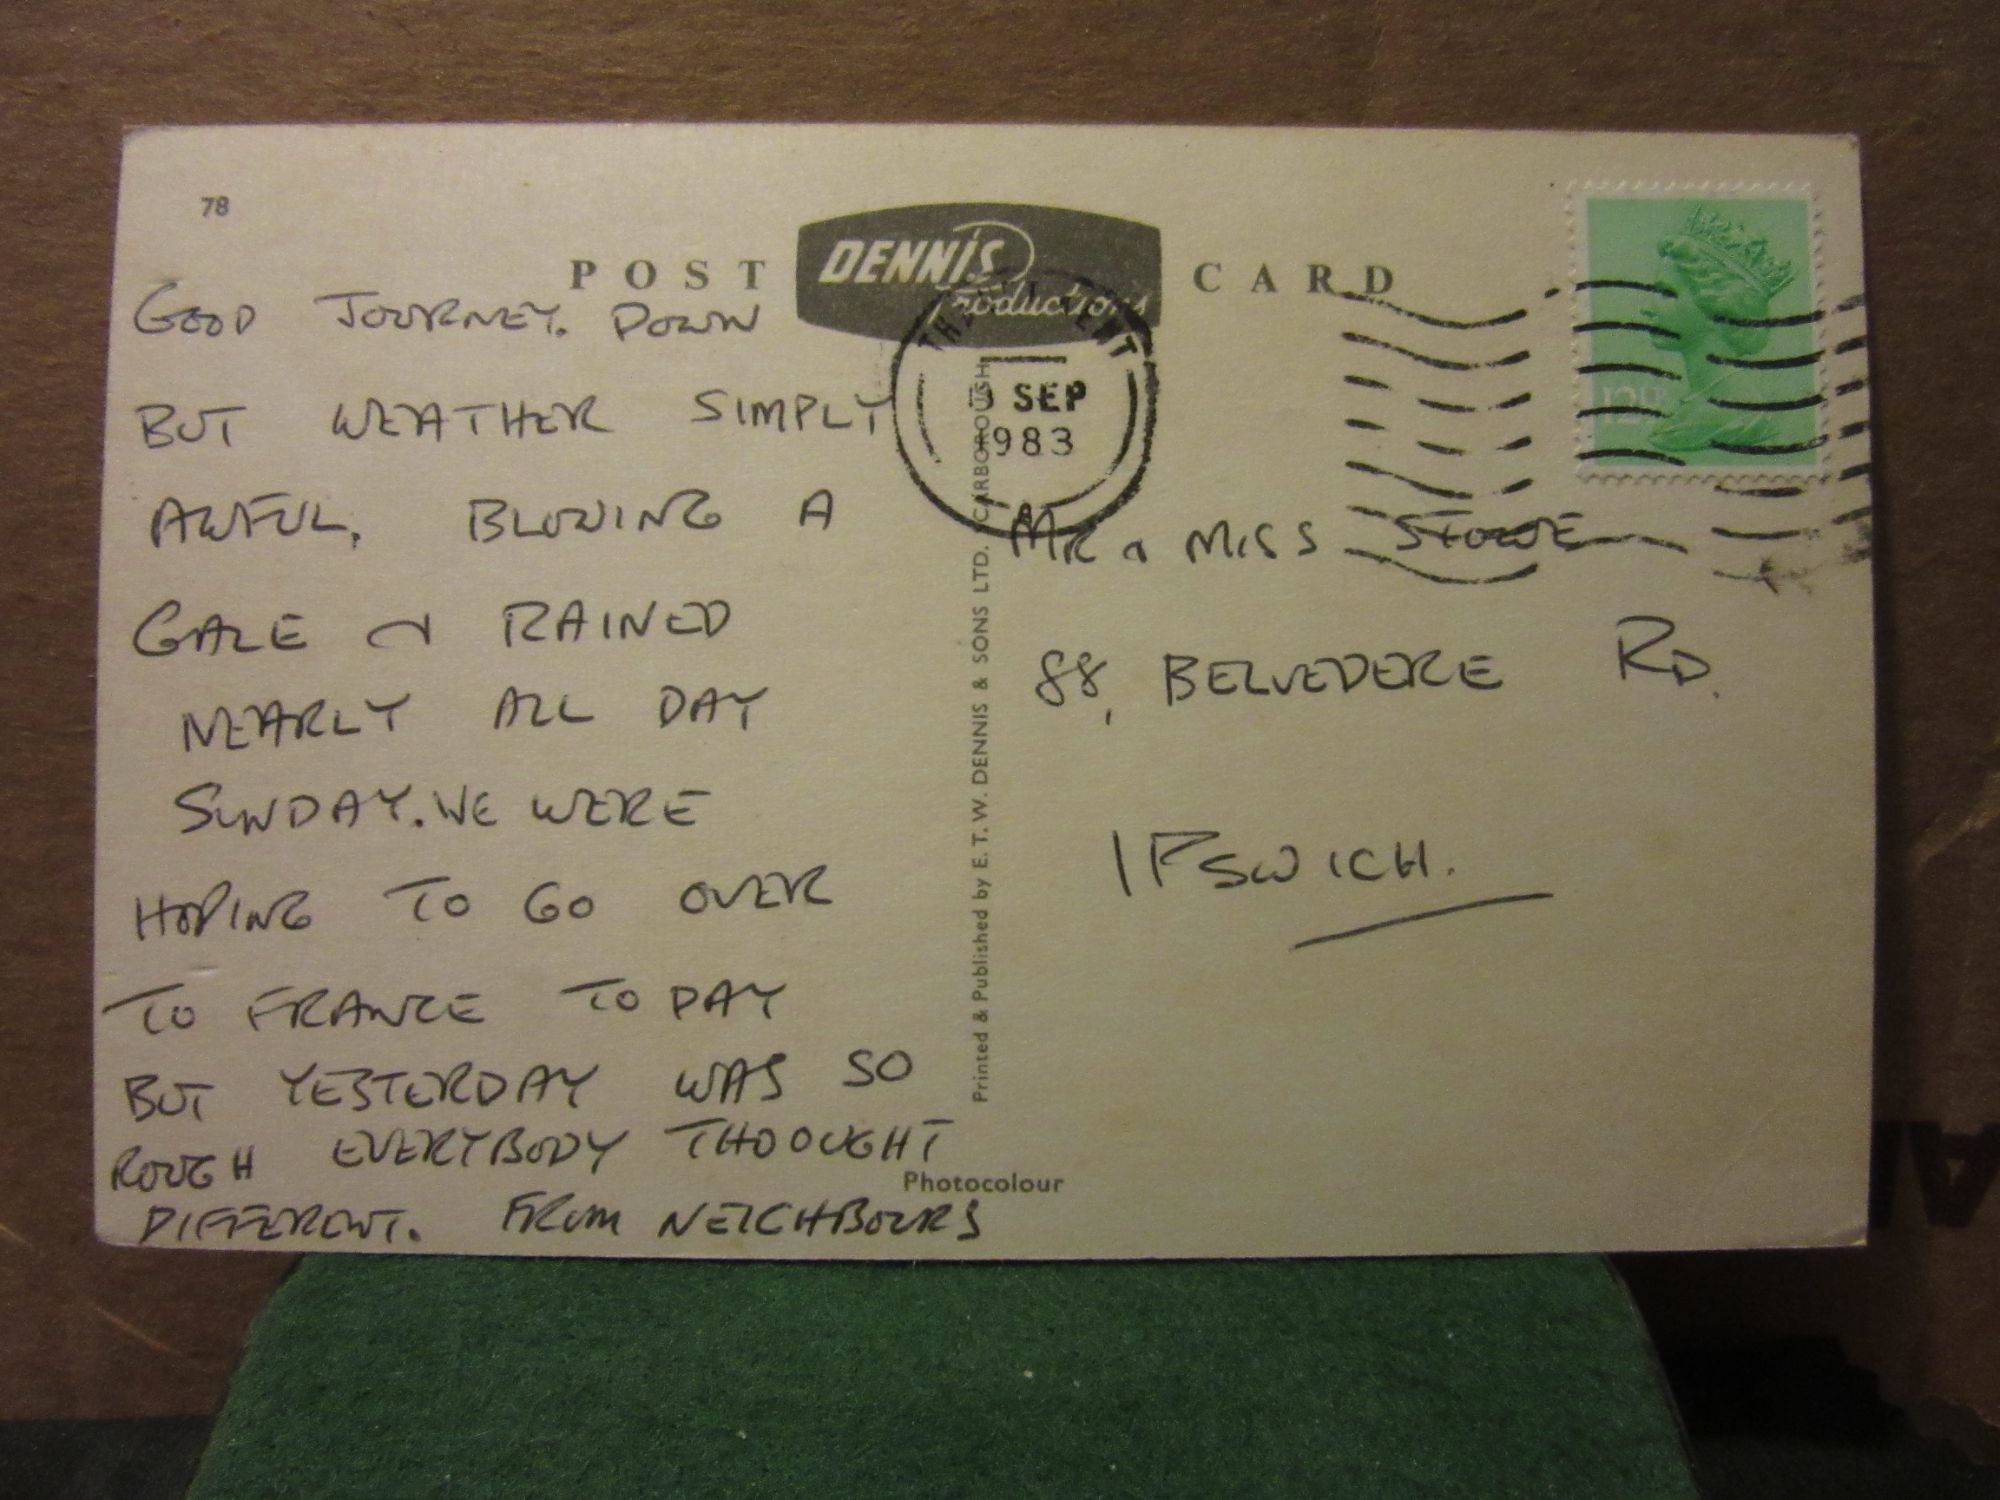 78
POST DENNIS Productions CARD
GOOD JOURNEY. DOWN
BUT WEATHER SIMPLY
AWFUL, BLOWING A
GALE & RAINED
NEARLY ALL DAY
SUNDAY. WE WERE
HOPING TO GO OVER
TO FRANCE TODAY
BUT YESTERDAY WAS SO
ROUGH EVERYBODY THOOUGHT
DIFFERENT. FROM NEIGHBOURS
SEP
983
Printed & Published by E. T. W. DENNIS & SONS LTD. SCARBOROUGH
Photocolour
12½P
MR & MISS STOWE
88, BELVEDERE RD.
IPSWICH.